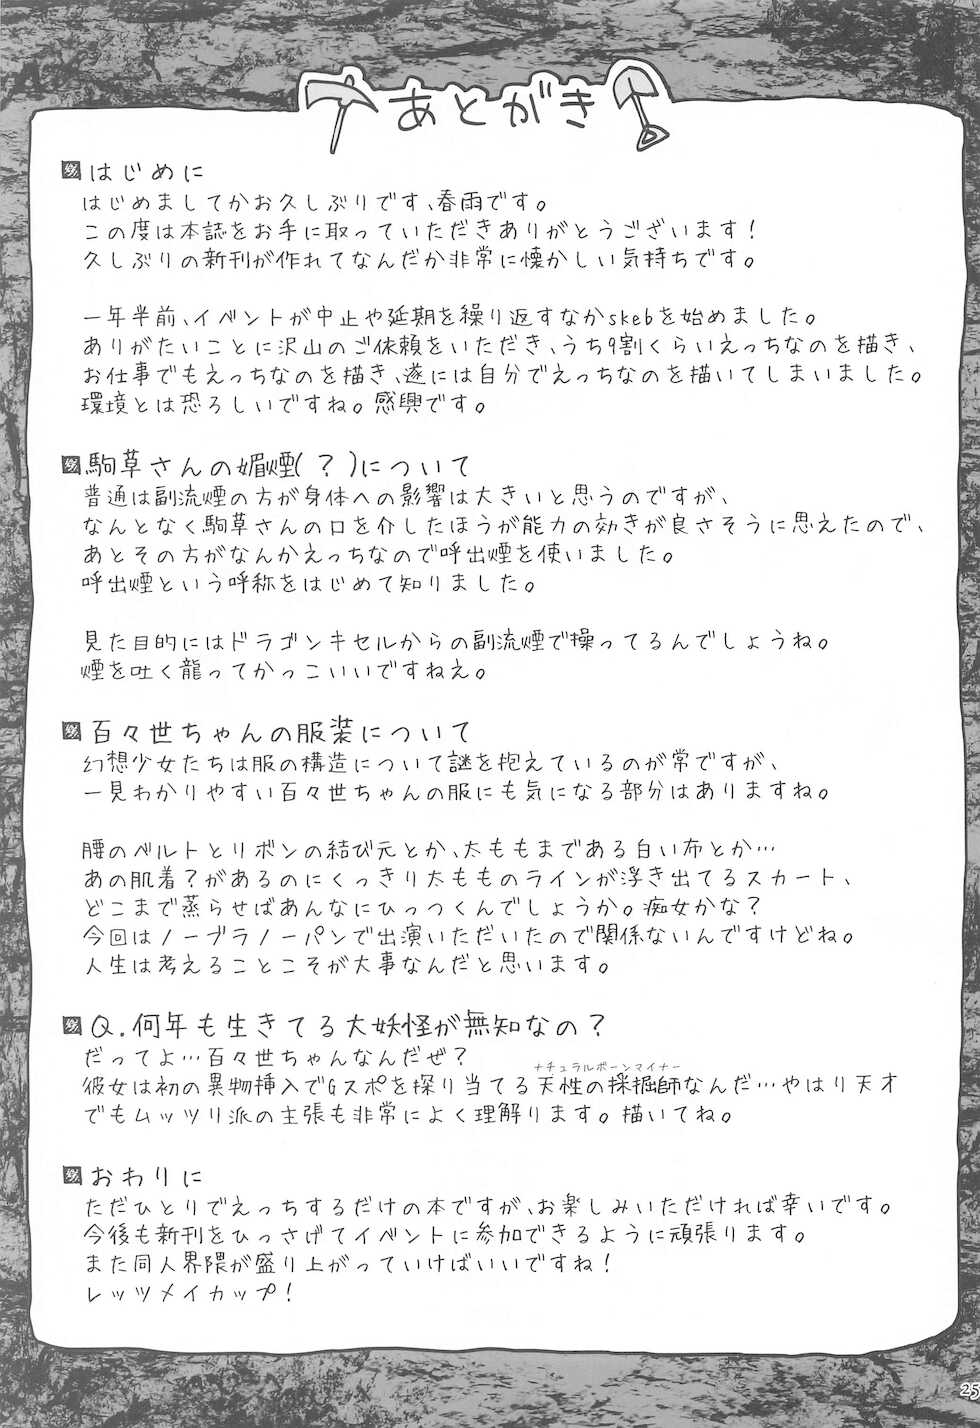 あとがき
はじめに
はじめましてかお久しぶりです、春雨です。
この度は本誌をお手に取っていただきありがとうございます！
久しぶりの新刊が作れてなんだか非常に懐かしい気持ちです。
一年半前、イベントが中止や延期を繰り返すなかskebを始めました。
ありがたいことに沢山のご依頼をいただき、うち9割くらいえっちなのを描き、
お仕事でもえっちなのを描き、遂には自分でえっちなのを描いてしまいました。
環境とは恐ろしいですね。感興です。
駒草さんの媚煙(？)について
普通は副流煙の方が身体への影響は大きいと思うのですが、
なんとなく駒草さんの口を介したほうが能力の効きが良さそうに思えたので、
あとその方がなんかえっちなので呼出煙を使いました。
呼出煙という呼称をはじめて知りました。
見た目的にはドラゴンキセルからの副流煙で操ってるんでしょうね。
煙を吐く龍ってかっこいいですねえ。
百々世ちゃんの服装について
幻想少女たちは服の構造について謎を抱えているのが常ですが、
一見わかりやすい百々世ちゃんの服にも気になる部分はありますね。
腰のベルトとリボンの結び元とか、太ももまである白い布とか…
あの肌着？があるのにくっきり太もものラインが浮き出てるスカート、
どこまで蒸らせばあんなにひっつくんでしょうか。痴女かな？
今回はノーブラノーパンで出演いただいたので関係ないんですけどね。
人生は考えることこそが大事なんだと思います。
Q.何年も生きてる大妖怪が無知なの？
だってよ…百々世ちゃんなんだぜ？
ナチュラルボーンマイナー
彼女は初の異物挿入でGスポを探り当てる天性の採掘師なんだ…やはり天才
でもムッツリ派の主張も非常によく理解ります。描いてね。
おわりに
ただひとりでえっちするだけの本ですが、お楽しみいただければ幸いです。
今後も新刊をひっさげてイベントに参加できるように頑張ります。
また同人界隈が盛り上がっていけばいいですね！
レッツメイカップ！
25